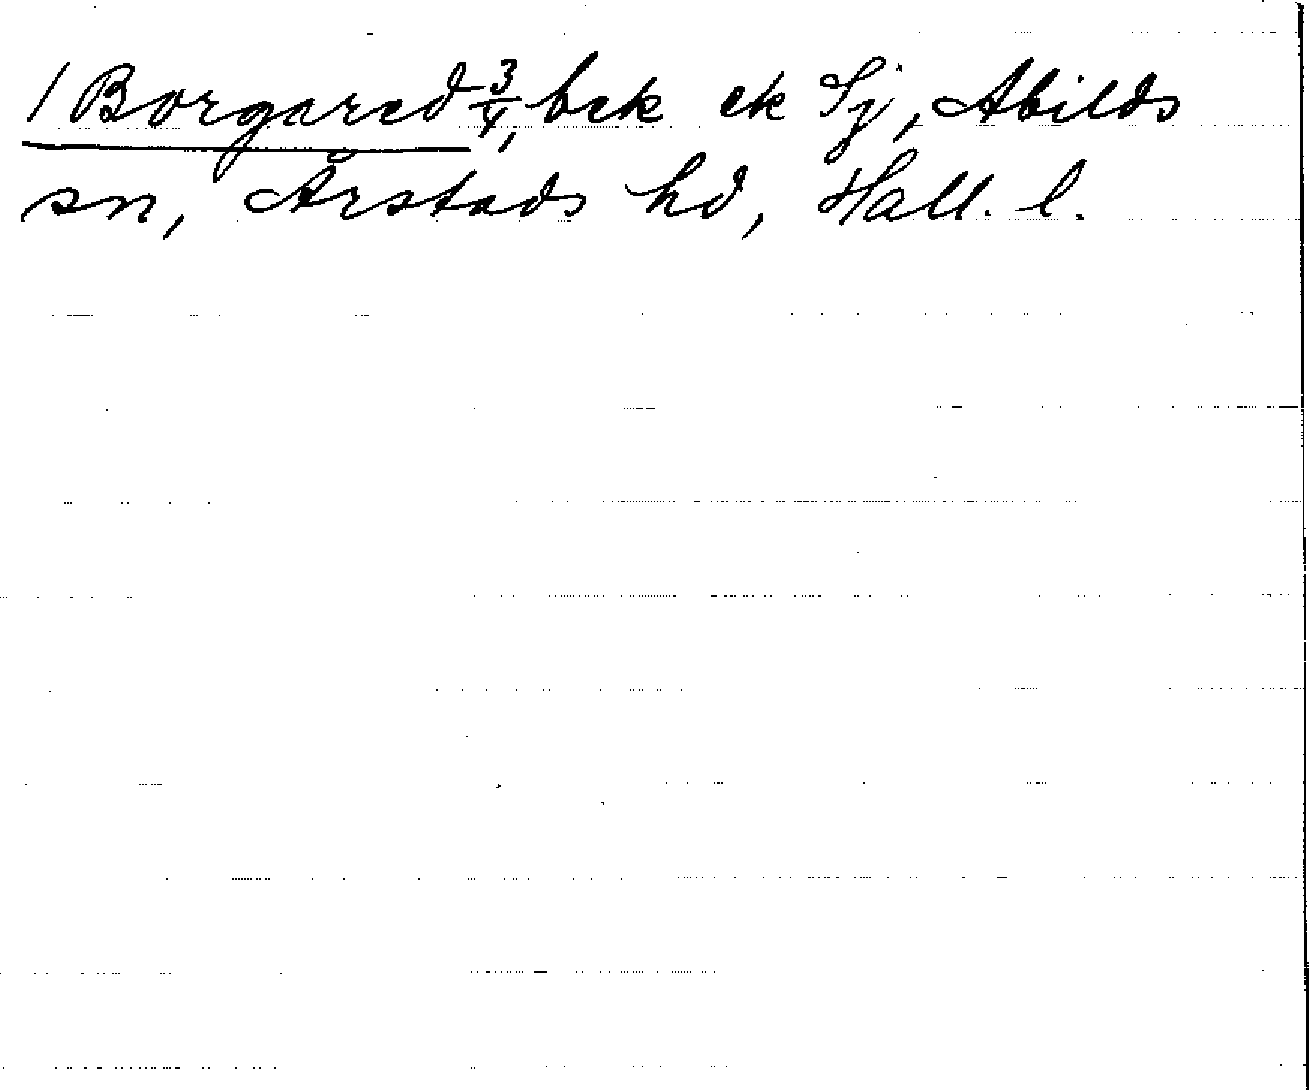 1 Borgared 3/4, bek ek Sj, Abilds
sn, Årstads hd, Hall. l.